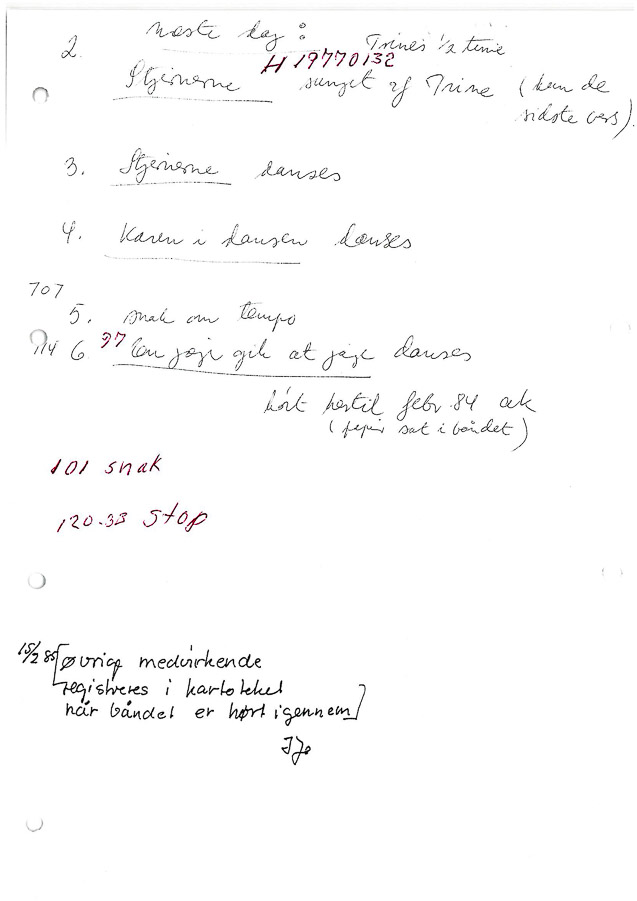 næste dag: Trines 1/2 time
H 19770132
2. Stjernerne sunget af Trine (kun de
sidste vers).
3. Stjernerne danses
4. Karen i dansen danses
707
5. snak om tempo
714 6. 97 En jæger gik at jage danses
hørt hertil febr. 84 ak
(papir sat i båndet)
101 snak
120.33 stop
15/2 85 [øvrige medvirkende
registreres i kartoteket
når båndet er hørt igennem]